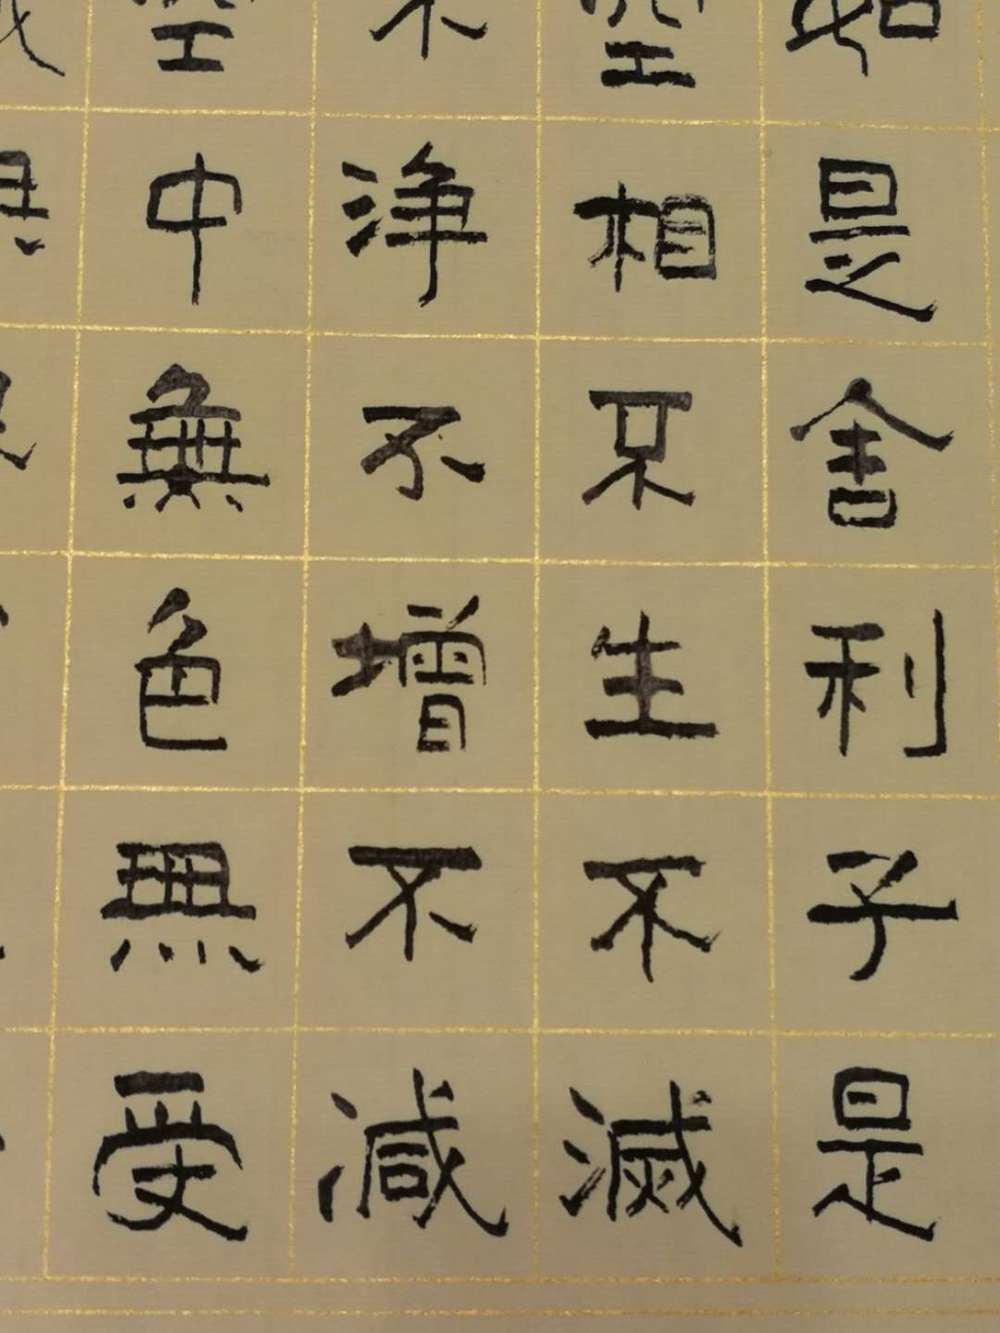 如是舍利子是
空相不生不滅
不浄不增不减
空中無色無受